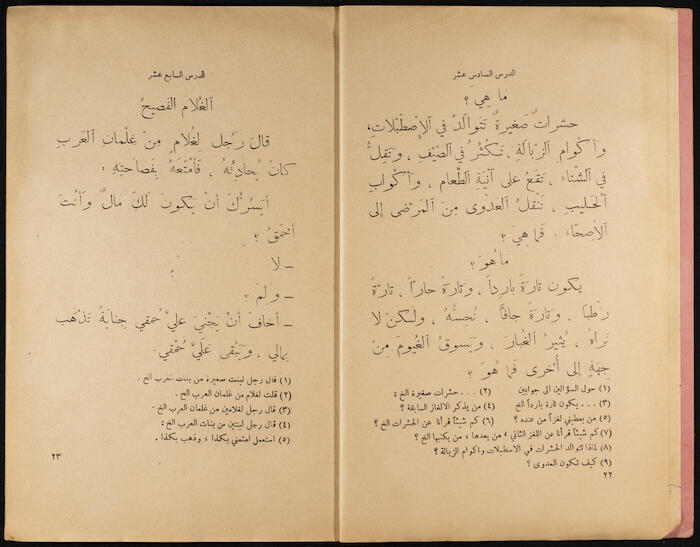 الدرس السادس عشر
مَا هِيَ ؟
حشراتٌ صَغيرةٌ تَتَوالَدُ في الإِصْطَبْلاتِ،
وَأَكْوامِ الزِّبالَةِ، تَكْثُرُ في الصَّيْفِ، وَتَقِلُّ
في الشِّتاءِ، تَقَعُ على آنِيَةِ الطَّعام، وَأَكْوابِ
الْحَليبِ، تَنْقُلُ الْعَدوَى مِنَ المَرْضى إلى
الأَصِحّاءِ. فَما هِيَ ؟
مَا هُوَ ؟
يكون تارَةً بارِداً، وَتارَةً حارّاً، تارَةً
رَطْباً، وَتارَةً جافّاً، نُحِسُّهُ، وَلَكِنْ لا
نَراهُ، يُثيرُ الغُبارَ، وَيَسوقُ الغُيومَ مِنْ
جِهَةٍ إلى أُخْرى فَما هُوَ ؟
(١) حول السؤالين الى جوابين (٢) . . . حشرات صغيرة الخ :
(٣) . . . يكون تارة بارداً الخ (٤) من يذكر الالغاز السابقة ؟
(٥) من يعطيني لغزاً من عنده ؟ (٦) كم شيئاً قرأنا عن الحشرات الخ ؟
(٧) كم شيئاً قرأنا عن اللغز الثاني ؛ من بعدها ، من يكتبها الخ ؟
(٨) لماذا تتوالد الحشرات في الاسطبلات واكوام الزبالة ؟
(٩) كيف تكون العدوى ؟
٢٢
الدرس السابع عشر
اَلغُلامُ الفَصيحُ
قالَ رَجُل لِغُلامٍ مِنْ غِلْمانِ اَلعَربِ
كانَ يُحادِثُهُ ، فَأَمْتَعَهُ بِفَصاحَتِهِ :
أَيَسُرُّكَ أَنْ يَكونَ لَكَ مالٌ وَأَنْتَ
أَحْمَقُ ؟
ــ لا
ــ وَلِمَ ؟
ــ أَخافُ أَنْ يَجْنِيَ عَلَيَّ حُمْقي جِنايَةً تَذْهَب
بِمالي ، وَيَبْقى عَلَيَّ حُمْقي.
(١) قال رجل لبنت صغيرة من بنات العرب الخ .
(٢) قلت لغلام من غلمان العرب الخ .
(٣) قال رجل لغلامين من غلمان العرب الخ.
(٤) قال رجل لبنتين من بنات العرب الخ :
(٥) استعمل امتعني بكذا ؛ وذهب بكذا .
٢٣